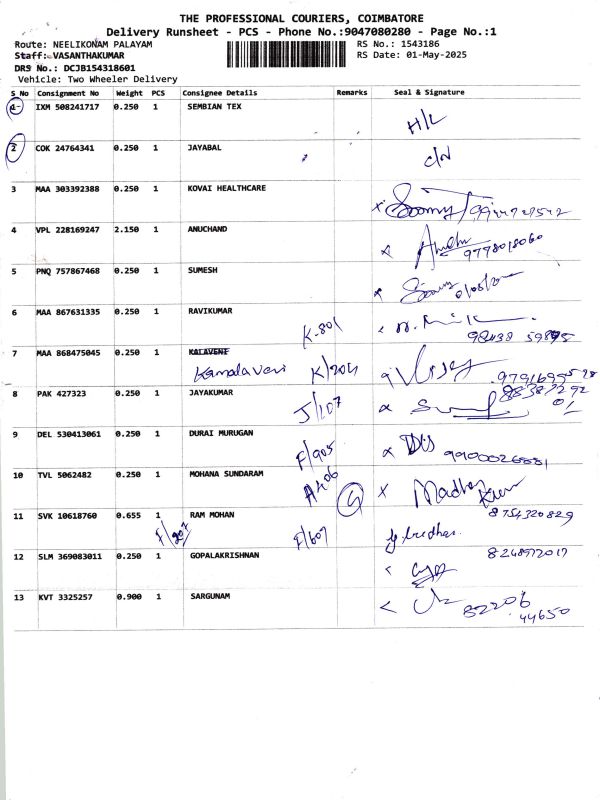 THE PROFESSIONAL COURIERS, COIMBATORE
Delivery Runsheet - PCS - Phone No.:9047080280 - Page No.:1
Route: NEELIKONAM PALAYAM
RS No.: 1543186
Staff: VASANTHAKUMAR
RS Date: 01-May-2025
DRS No.: DCJB154318601
Vehicle: Two Wheeler Delivery
S_No Consignment No Weight PCS Consignee Details Remarks Seal & Signature
1 IXM 508241717 0.250 1 SEMBIAN TEX
H/L
2 COK 24764341 0.250 1 JAYABAL
3 MAA 303392388 0.250 1 KOVAI HEALTHCARE
4 VPL 228169247 2.150 1 ANUCHAND
9778018060
5 PNQ 757867468 0.250 1 SUMESH
6 MAA 867631335 0.250 1 RAVIKUMAR
K-801
7 MAA 868475045 0.250 1 KALAVENI
Kamalaveni K/204
8 PAK 427323 0.250 1 JAYAKUMAR
J/107
9 DEL 530413061 0.250 1 DURAI MURUGAN
F/905
10 TVL 5062482 0.250 1 MOHANA SUNDARAM
A406
Madhan Kumar
8754320829
11 SVK 10618760 0.655 1 RAM MOHAN
F/207 F/607
8248972017
12 SLM 369083011 0.250 1 GOPALAKRISHNAN
13 KVT 3325257 0.900 1 SARGUNAM
82206
44650